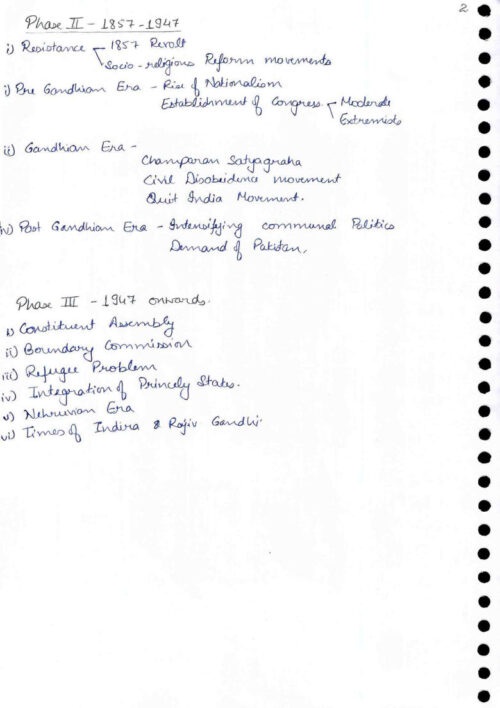 2
Phase II - 1857-1947
i) Resistance - 1857 Revolt
Socio-religious Reform movements
i) Pre Gandhian Era - Rise of Nationalism
Establishment of Congress - Moderate
Extremists
ii) Gandhian Era -
Champaran Satyagraha
Civil Disobeidena movement
Quit India Movement.
iv) Post Gandhian Era - Intensifying communal Politics
Demand of Pakistan,
Phase III - 1947 onwards.
i) Constituent Assembly
ii) Boundary Commission
iii) Refugee Problem
iv) Integration of Princely States.
v) Nehruvian Era
vi) Times of Indira & Rajiv Gandhi.